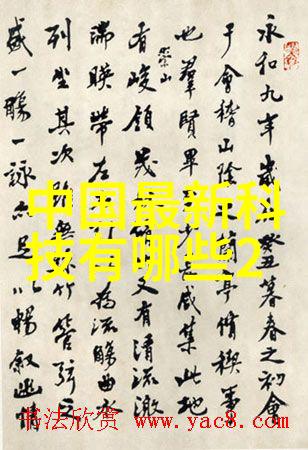 永和九年歲丑暮春之初會
于會稽山陰亭脩禊事
也羣賢畢咸集此地
有崇山峻領茂又有清流激
湍暎帶左為流觴曲水
列坐其次雖無竹管弦之
盛一觴一詠亦足以暢敘幽情
中国最新科
技有哪些2
书法欣赏 www.yac8.com